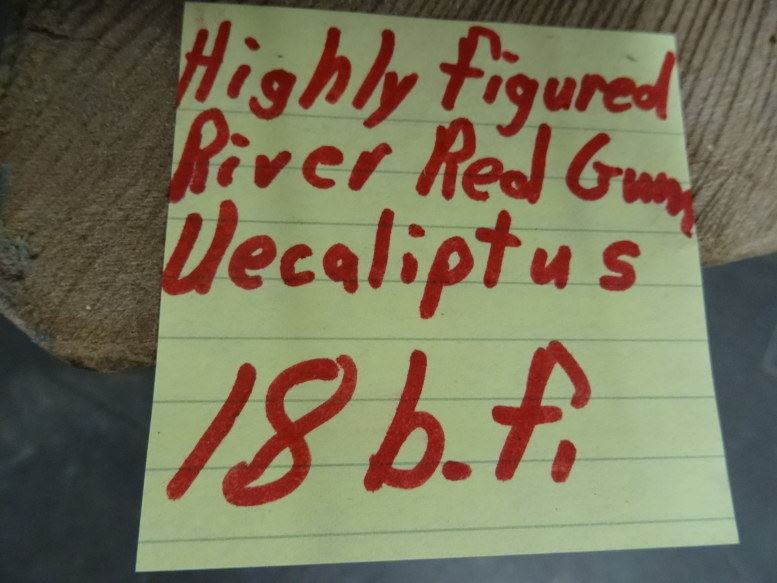 Highly figured
River Red Gum
Uecaliptus
18 b.f.